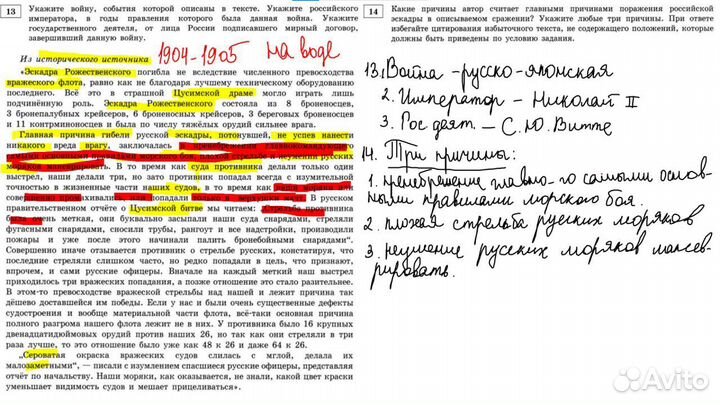 13
Укажите войну, события которой описаны в тексте. Укажите российского
императора, в годы правления которого была данная война. Укажите
государственного деятеля, от лица России подписавшего мирный договор,
завершивший данную войну.
1904-1905 на воде
Из исторического источника
«Эскадра Рожественского погибла не вследствие численного превосходства
вражеского флота, равно как не благодаря лучшему техническому оборудованию
последнего. Всё это в страшной Цусимской драме могло играть лишь
подчинённую роль. Эскадра Рожественского состояла из 8 броненосцев,
3 бронепалубных крейсеров, 6 броненосных крейсеров, 3 береговых броненосцев
и 11 контрминоносцев и была по числу тяжёлых орудий сильнее врага.
Главная причина гибели русской эскадры, потонувшей, не успев нанести
никакого вреда врагу, заключалась в пренебрежении главнокомандующего
самыми основными правилами морского боя, плохой стрельбе и неумении русских
моряков маневрировать. В то время как суда противника делали только один
выстрел, наши делали три, но зато противник попадал всегда с изумительной
точностью в жизненные части наших судов, в то время как наши моряки или
совершенно промахивались, или попадали только в верхушки мачт. В русском
правительственном отчёте о Цусимской битве мы читаем: «Стрельба противника
была очень меткая, они буквально засыпали наши суда снарядами, стреляли
фугасными снарядами, сносили трубы, рангоут и все надстройки, производили
пожары и уже после этого начинали палить бронебойными снарядами".
Совершенно иначе отзывается противник о стрельбе русских, констатируя, что
последние стреляли слишком часто, но редко попадали в цель, что признают,
впрочем, и сами русские офицеры. Вначале на каждый меткий наш выстрел
приходилось три вражеских попадания, а позже отношение это стало разительнее.
В этом-то превосходстве вражеской стрельбы над нашей и лежит причина так
дёшево доставшейся им победы. Если у нас и были очень существенные дефекты
судостроения и вообще материальной части флота, всё-таки основная причина
полного разгрома нашего флота лежит не в них. У противника было 16 крупных
двенадцатидюймовых орудий против наших 26, но так как они стреляли в три
раза лучше, то это отношение было уже как 48 к 26 и даже 64 к 26.
„Сероватая окраска вражеских судов слилась с мглой, делала их
малозаметными“, — писали с изумлением спасшиеся русские офицеры, представляя
отчёт по начальству. Наши моряки, как оказывается, не знали, какой цвет краски
уменьшает видимость судов и мешает прицеливаться».
14
Какие причины автор считает главными причинами поражения российской
эскадры в описываемом сражении? Укажите любые три причины. При ответе
избегайте цитирования избыточного текста, не содержащего положений, которые
должны быть приведены по условию задания.
13.1. Война - русско-японская
2. Император - Николай II
3. Гос деят. - С.Ю. Витте
14. Три причины:
1. пренебрежение главно-го самыми основ-
ными правилами морского боя.
2. плохая стрельба русских моряков
3. неумение русских моряков манев-
рировать.
Avito